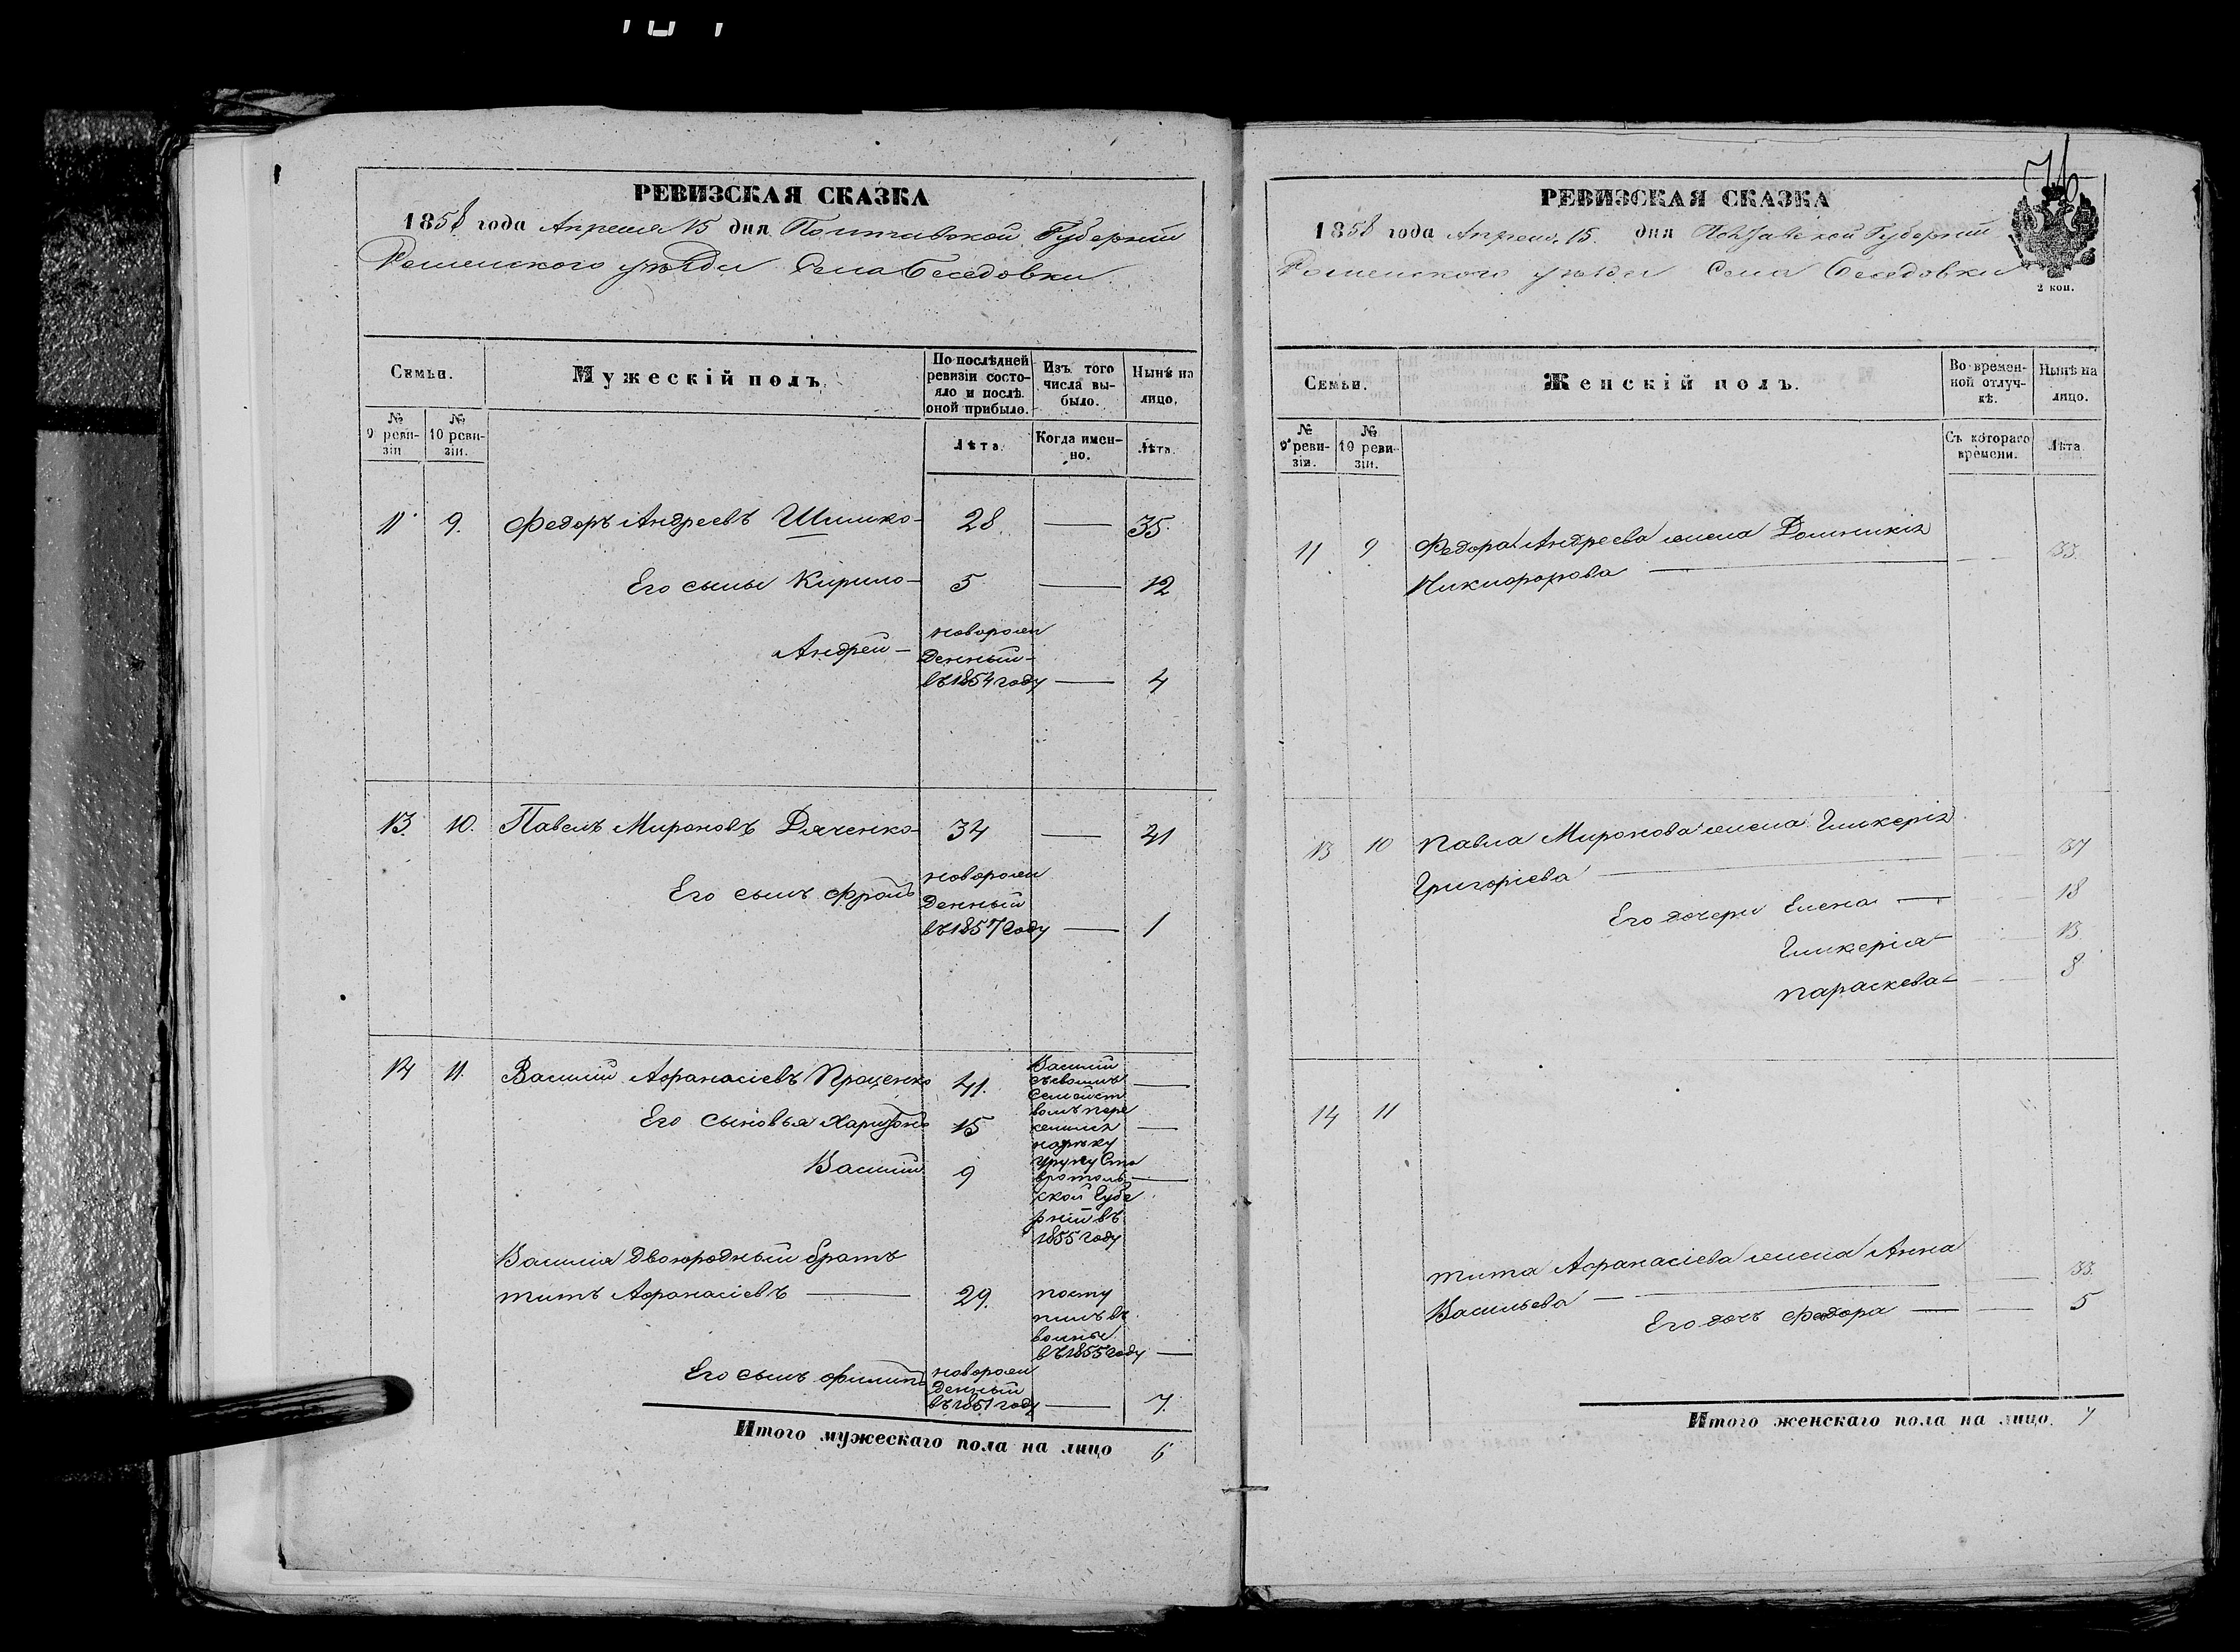 РЕВИЗСКАЯ СКАЗКА
1858 года Апреля 15 дня Полтавской Губерніи
Роменского уѣзда Села Беседовки
Семьи.
Мужескій полъ.
По послѣдней ревизіи состояло и послѣ оной прибыло.
Изъ того числа выбыло.
Нынѣ на лицо.
№ 9 ревизіи
№ 10 ревизіи.
Лѣта.
Когда именно.
Лѣта.
11 9. Федоръ Андреевъ Шишко 28 35.
Его сыны Кирило 5 12
Андрей
новорожденный въ 1854 году 4
13. 10. Павелъ Мироновъ Дяченко 34 41
Его сынъ Фролъ
новорожденный въ 1857 году 1
14 11. Василий Афанасіевъ Проценко 41.
Его сыновья Харитонъ 15
Василий 9
Василий съ своимъ семейством пере
Ставропольской Губерній въ 1855 году
Василия Двоюродный братъ
Титъ Афанасіевъ 29.
поступилъ въ
въ 1855 году
Его сынъ Филипъ
новорожденный въ 1851 году 7.
Итого мужескаго пола на лицо 6
РЕВИЗСКАЯ СКАЗКА
1858 года Апреля 15. дня Полтавской Губерніи
Роменского уѣзда Села Беседовки
2 коп.
Семьи.
Женскій полъ.
Во временной отлучкѣ.
Нынѣ на лицо.
№ 9 ревизіи.
№ 10 ревизіи.
Съ котораго времени.
Лѣта
11 9 Федора Андреева жена Домникія 33.
Никифорова
13 10 Павла Миронова жена Гликерія 37
Григоріева
Его дочери Елена 18
Гликерія 13.
Параскева 8
14 11
Тита Афанасіева жена Анна 33.
Васильева
Его дочь Федора 5
Итого женскаго пола на лицо. 7